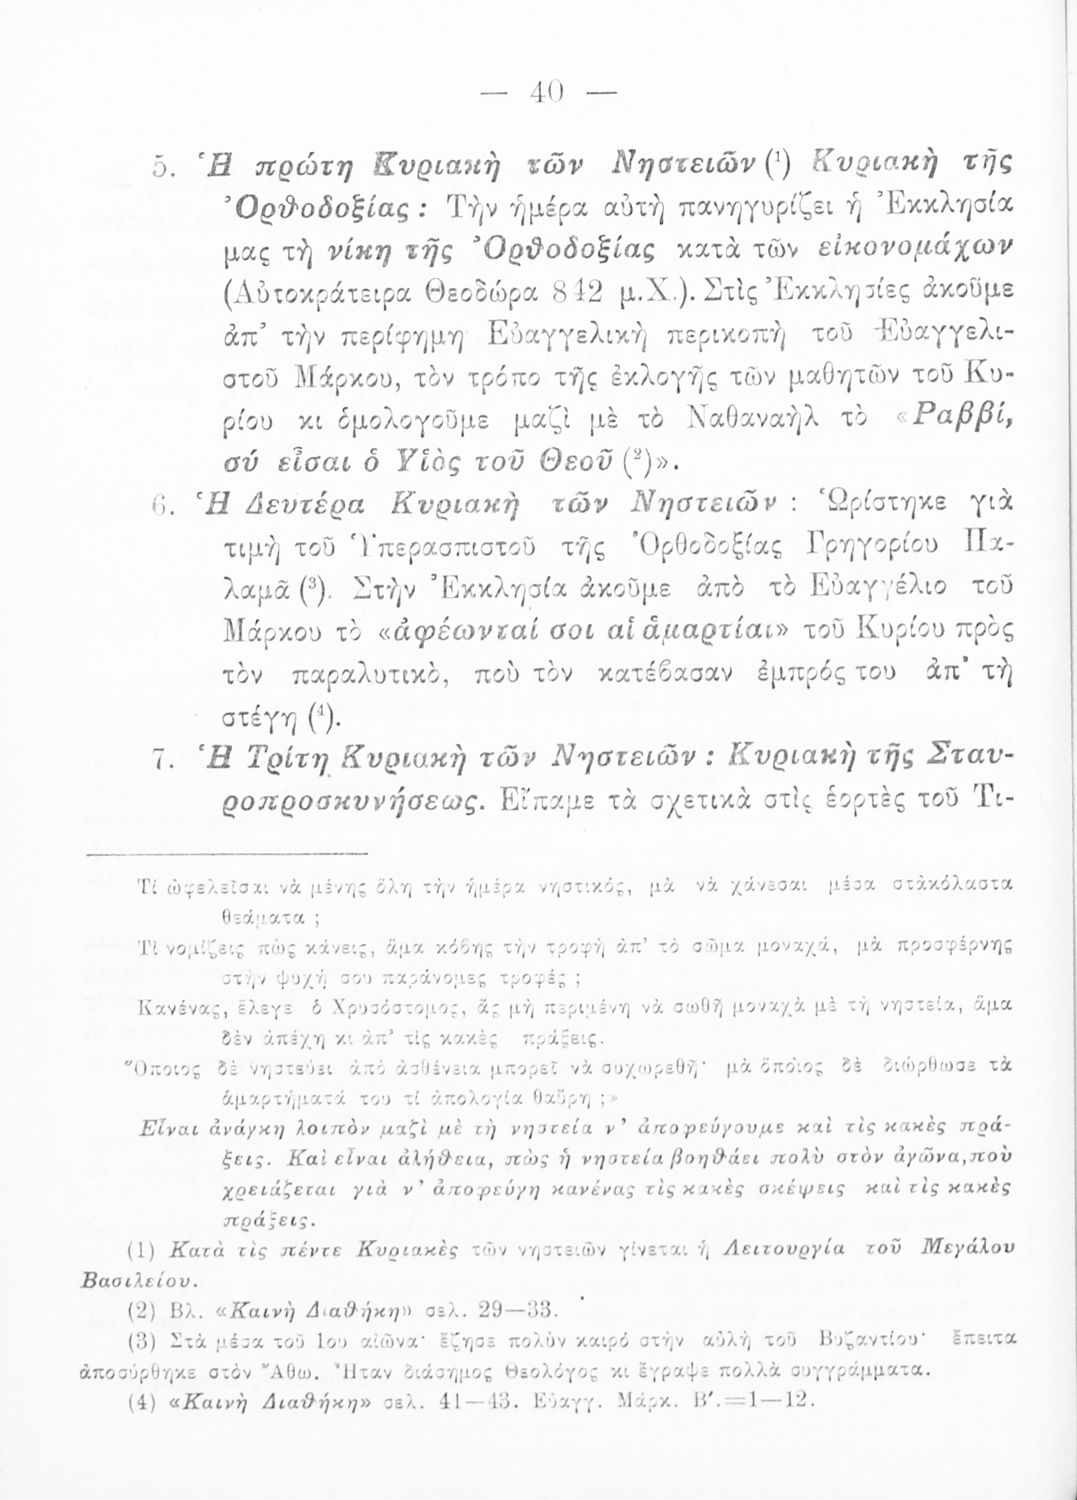 — 40 —
5. Ἡ πρώτη Κυριακὴ τῶν Νηστειῶν (¹) Κυριακὴ τῆς
Ὀρθοδοξίας : Τὴν ἡμέρα αὐτὴ πανηγυρίζει ἡ Ἐκκλησία
μας τὴ νίκη τῆς Ὀρθοδοξίας κατὰ τῶν εἰκονομάχων
(Αὐτοκράτειρα Θεοδώρα 842 μ.Χ.). Στὶς Ἐκκλησίες ἀκοῦμε
ἀπ’ τὴν περίφημη Εὐαγγελικὴ περικοπὴ τοῦ Εὐαγγελι-
στοῦ Μάρκου, τὸν τρόπο τῆς ἐκλογῆς τῶν μαθητῶν τοῦ Κυ-
ρίου κι ὁμολογοῦμε μαζὶ μὲ τὸ Ναθαναὴλ τὸ «Ραββί,
σύ εἶσαι ὁ Υἱὸς τοῦ Θεοῦ (²)».
6. Ἡ Δευτέρα Κυριακὴ τῶν Νηστειῶν : Ὡρίστηκε γιὰ
τιμὴ τοῦ Ὑπερασπιστοῦ τῆς Ὀρθοδοξίας Γρηγορίου Πα-
λαμᾶ (³). Στὴν Ἐκκλησία ἀκοῦμε ἀπὸ τὸ Εὐαγγέλιο τοῦ
Μάρκου τὸ «ἀφέωνταί σοι αἱ ἁμαρτίαι» τοῦ Κυρίου πρὸς
τὸν παραλυτικὸ, ποὺ τὸν κατέβασαν ἐμπρός του ἀπ’ τὴ
στέγη (⁴).
7. Ἡ Τρίτη Κυριακὴ τῶν Νηστειῶν : Κυριακὴ τῆς Σταυ-
ροπροσκυνήσεως. Εἴπαμε τὰ σχετικὰ στὶς ἑορτὲς τοῦ Τι-
Τί ὠφελεῖσαι νὰ μένῃς ὅλη τὴν ἡμέρα νηστικός, μὰ νὰ χάνεσαι μέσα στἀκόλαστα
θεάματα ;
Τί νομίζεις πὼς κάνεις, ἅμα κόβῃς τὴν τροφὴ ἀπ’ τὸ σῶμα μοναχά, μὰ προσφέρνῃς
στὴν ψυχή σου παράνομες τροφές ;
Κανένας, ἔλεγε ὁ Χρυσόστομος, ἂς μὴ περιμένῃ νὰ σωθῇ μοναχὰ μὲ τὴ νηστεία, ἅμα
δὲν ἀπέχῃ κι ἀπ’ τὶς κακὲς πράξεις.
Ὅποιος δὲ νηστεύει ἀπό ἀσθένεια μπορεῖ νὰ συχωρεθῇ· μὰ ὅποιος δὲ διώρθωσε τὰ
ἁμαρτήματά του τί ἀπολογία θαὔρῃ ;»
Εἶναι ἀνάγκη λοιπὸν μαζὶ μὲ τὴ νηστεία ν’ ἀποφεύγουμε καὶ τὶς κακὲς πρά-
ξεις. Καὶ εἶναι ἀλήθεια, πὼς ἡ νηστεία βοηθάει πολὺ στὸν ἀγῶνα, ποὺ
χρειάζεται γιὰ ν’ ἀποφεύγῃ κανένας τὶς κακὲς σκέψεις καὶ τὶς κακὲς
πράξεις.
(1) Κατὰ τὶς πέντε Κυριακὲς τῶν νηστειῶν γίνεται ἡ Λειτουργία τοῦ Μεγάλου
Βασιλείου.
(2) Βλ. «Καινὴ Διαθήκη» σελ. 29—33.
(3) Στὰ μέσα τοῦ 1ου αἰῶνα· ἔζησε πολὺν καιρό στὴν αὐλὴ τοῦ Βυζαντίου· ἔπειτα
ἀποσύρθηκε στὸν Ἄθω. Ἦταν διάσημος Θεολόγος κι ἔγραψε πολλὰ συγγράμματα.
(4) «Καινὴ Διαθήκη» σελ. 41—43. Εὐαγγ. Μάρκ. Β'.=1—12.